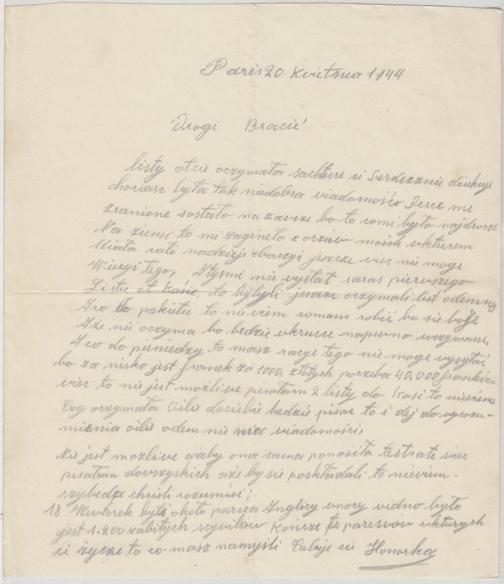 Paris 20 kwitnia 1944
Drogi Bracie!
listy otcie oczymała sachture ci Serdecznie dziekuje
choriarz była tak niedobra wiadomość Serce me
zranione sostało na zawsze bo to co mi było najdrosze
Na ziemi to mi zagineło z oczów moich wkturem
Miała cało nadzieje zbaczyć jeszcze wiec nie moge
Wierzyć tego, żtysme nie wysłał saras pierwszego
Listu ot Kasi, to byłybyli jeszcze oczymali list odemny
Aco do pakietu to niewiem comam robić bo sie boje
Aże nie oczyma bo bedzie wkrucce napewno wczymane,
Aco do pieniedzy to masz racye tego nie moge wysyłać
bo za nisko jest franek za 1000, złotych poczeba 40,000 franków
wiec to nie jest możliwe pisałam 2 listy do Kasi to niewiem
Czy oczymała Oile dociebie bedzie pisac to i dej do wyrozu-
mienia oile odem nie wiadomości
nie jest możliwe ażeby ona sama ponosiła testrate wiec
pisałam dowszyskich ażeby sie poskładali to niewiem
czybedo chcieli rozumieć;
18 Wewtorek byli około paryża Anglicy wnocy vidno było
jest 1.200 zabitych scywilów Kończe te paresvów wkturych
ci zycze to co masz namyśli Całuje cie Honorka